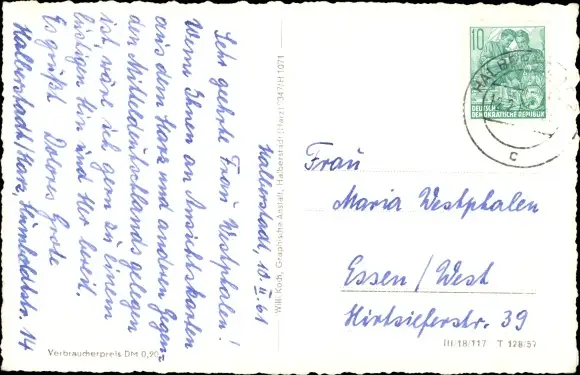 Halberstadt, 10.II.61
Sehr geehrte Frau Westphalen!
Wenn Ihnen an Ansichtskarten
aus dem Harz und anderen Gegen„
den Mitteldeutschlands gelegen
ist, wäre ich gern zu einem
lustigen Hin und Her bereit.
Es grüßt Dolores Grote
Halberstadt/Harz, Humboldtstr. 14
Verbraucherpreis DM 0,90
Will. Koch, Graphische Anstalt, Halberstadt (Harz) 1347/H 1071
10
5
DEUTSCHE
DEMOKRATISCHE REPUBLIK
c
Frau
Maria Westphalen
Essen/West
Hirtsieferstr. 39
III/18/117 T 128/57